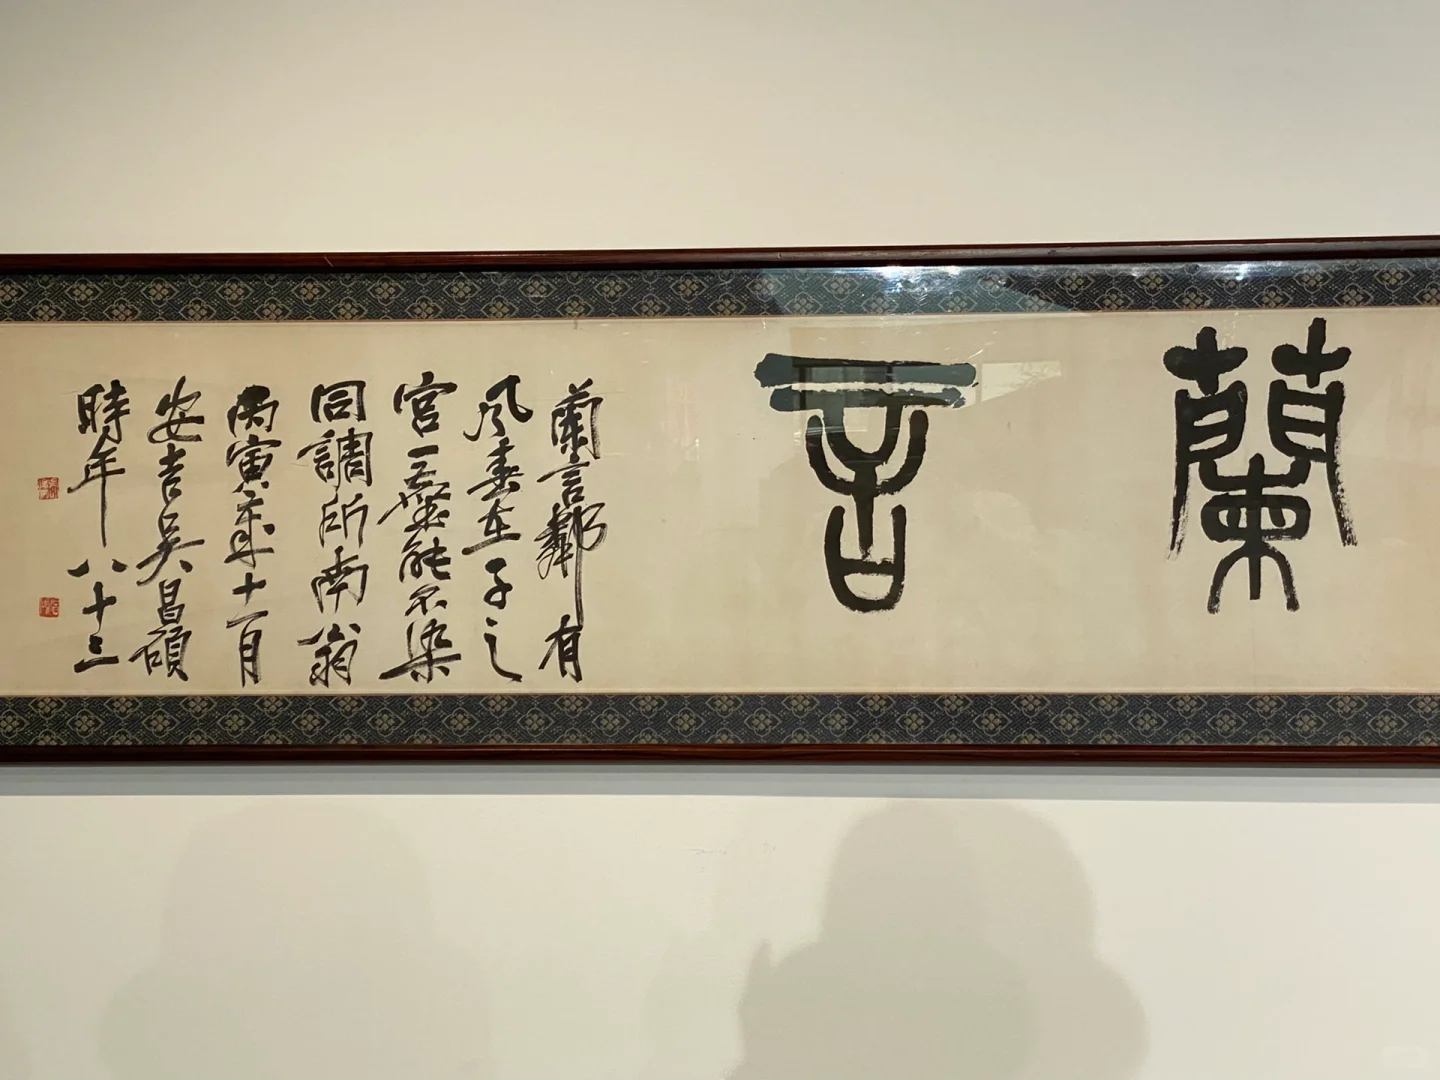 蘭言
蘭言鄰有
風春在子之
宮一塵能不染
同調所南翁
丙寅年十一月
安吉吳昌碩
時年八十三